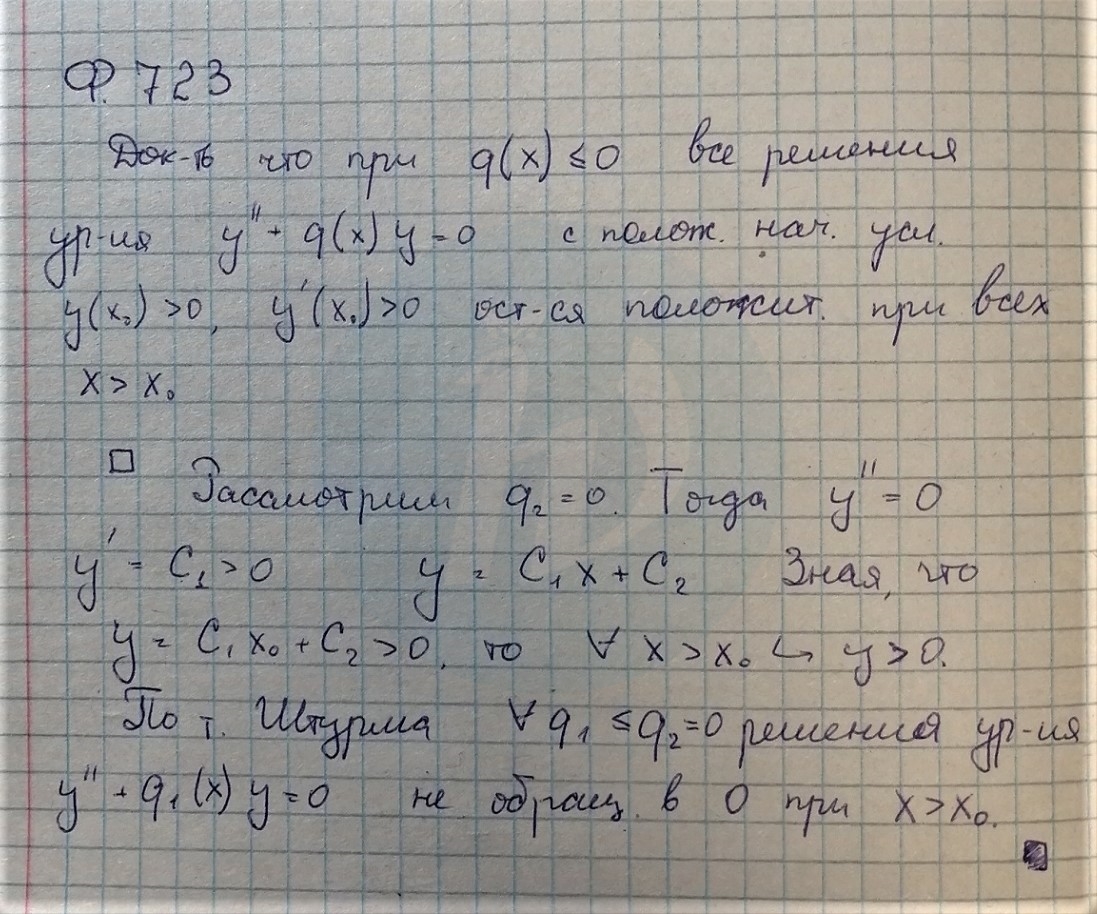 Ф. 723
Док-ть что при q(x) ≤ 0 все решения
ур-ия y'' + q(x) y = 0 с полож. нач. усл.
y(x₀) > 0, y'(x₀) > 0 ост-ся положит. при всех
x > x₀
□ Рассмотрим q₂ = 0. Тогда y'' = 0
y' = C₁ > 0 y = C₁ x + C₂ Зная, что
y = C₁ x₀ + C₂ > 0, то ∀ x > x₀ ↪ y > 0.
По т. Штурма ∀ q₁ ≤ q₂ = 0 решения ур-ия
y'' + q₁(x) y = 0 не обращ. в 0 при x > x₀.
■